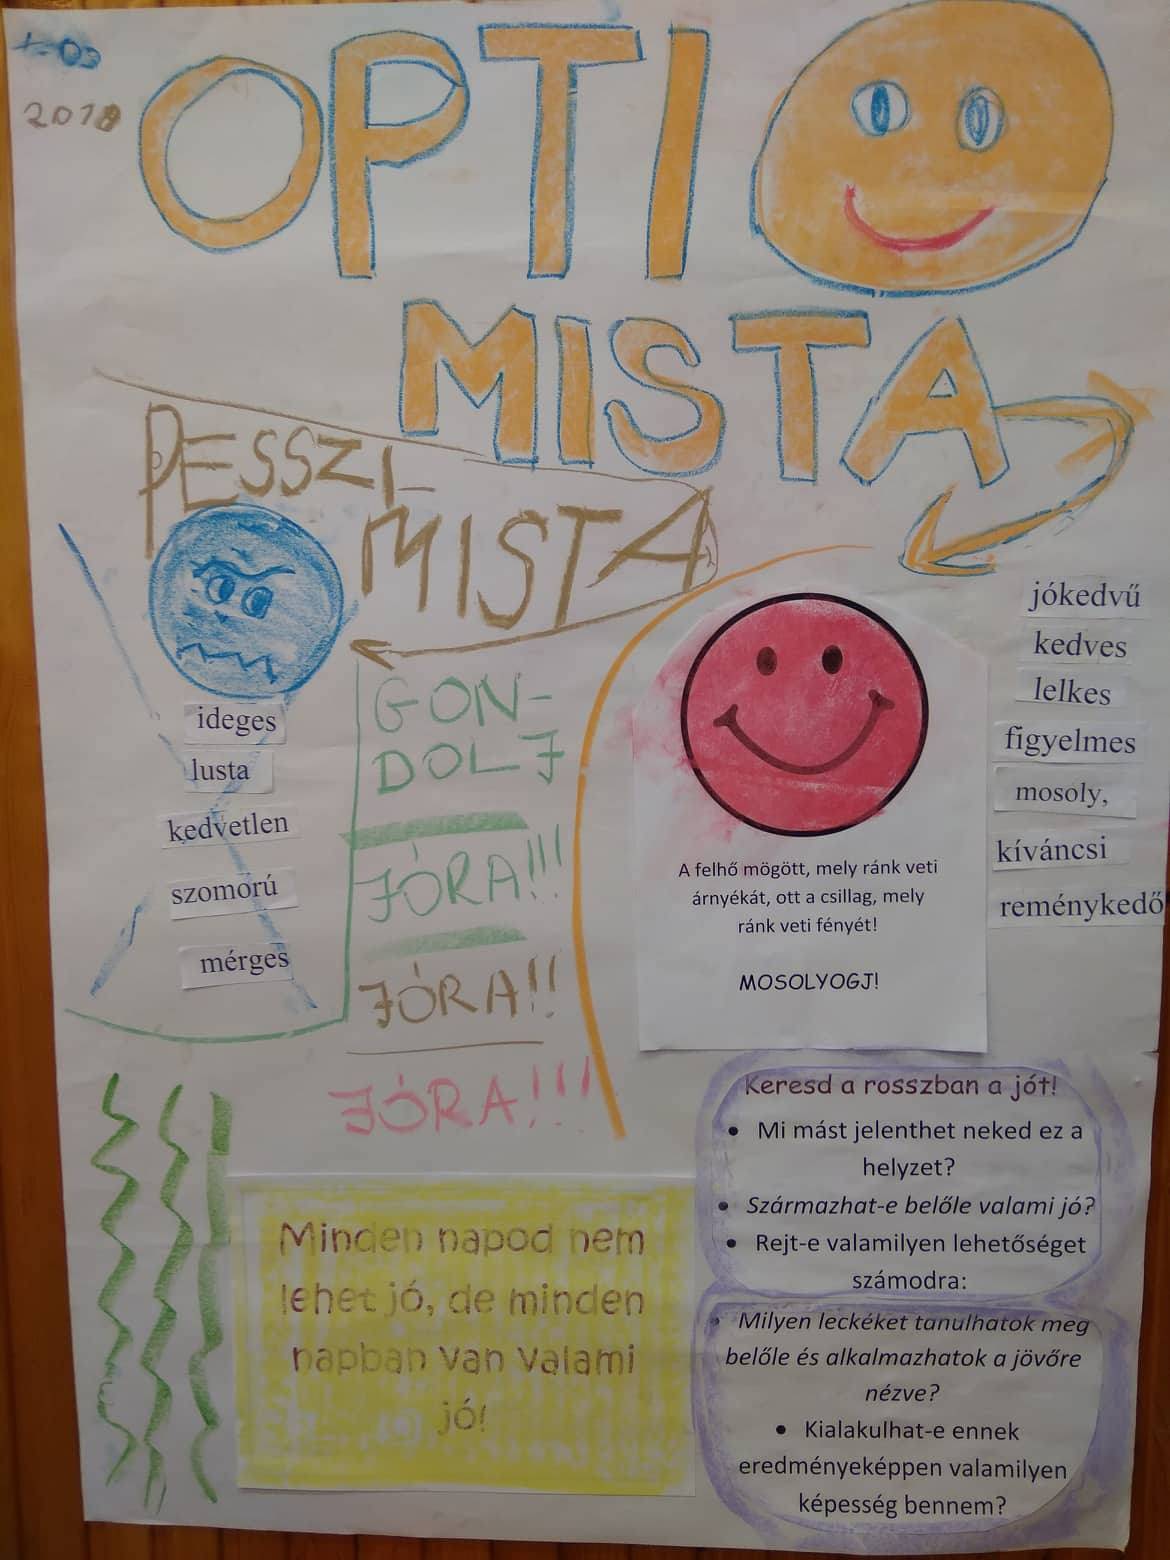 2018
OPTI
MISTA
PESSZI-
MISTA
ideges
lusta
kedvetlen
szomorú
mérges
GON-
DOLJ
JÓRA!!!
JÓRA!!
JÓRA!!!
A felhő mögött, mely ránk veti
árnyékát, ott a csillag, mely
ránk veti fényét!
MOSOLYOGJ!
jókedvű
kedves
lelkes
figyelmes
mosoly,
kíváncsi
reménykedő
Keresd a rosszban a jót!
• Mi mást jelenthet neked ez a
helyzet?
• Származhat-e belőle valami jó?
• Rejt-e valamilyen lehetőséget
számodra:
• Milyen leckéket tanulhatok meg
belőle és alkalmazhatok a jövőre
nézve?
• Kialakulhat-e ennek
eredményeképpen valamilyen
képesség bennem?
Minden napod nem
lehet jó, de minden
napban van valami
jó!